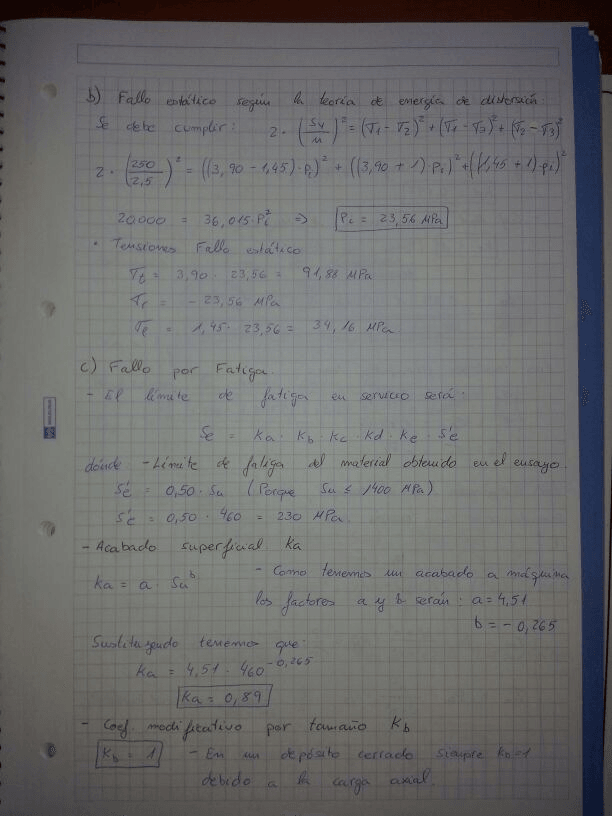 b) Fallo estático según la teoría de energía de distorsión:
Se debe cumplir: 2 · (Sy/n)² = (σ1 - σ2)² + (σ1 - σ3)² + (σ2 - σ3)²
2 · (250/2,5)² = ((3,90 - 1,45) · Pi)² + ((3,90 + 1) · Pi)² + ((1,45 + 1) · Pi)²
20.000 = 36,015 · Pi² => Pi = 23,56 MPa
· Tensiones Fallo estático
σt = 3,90 · 23,56 = 91,88 MPa
σr = - 23,56 MPa
σl = 1,45 · 23,56 = 34,16 MPa
c) Fallo por Fatiga.
- El límite de fatiga en servicio será:
Se = Ka · Kb · Kc · Kd · Ke · S'e
dónde: - Límite de fatiga del material obtenido en el ensayo.
S'e = 0,50 · Su (Porque Su ≤ 1400 MPa)
S'e = 0,50 · 460 = 230 MPa.
- Acabado superficial Ka
Ka = a · Su^b - Como tenemos un acabado a máquina
los factores a y b serán: a = 4,51
b = - 0,265
Sustituyendo tenemos que:
Ka = 4,51 · 460^-0,265
Ka = 0,89
- Coef. modificativo por tamaño Kb
Kb = 1 - En un depósito cerrado siempre Kb=1
debido a la carga axial.